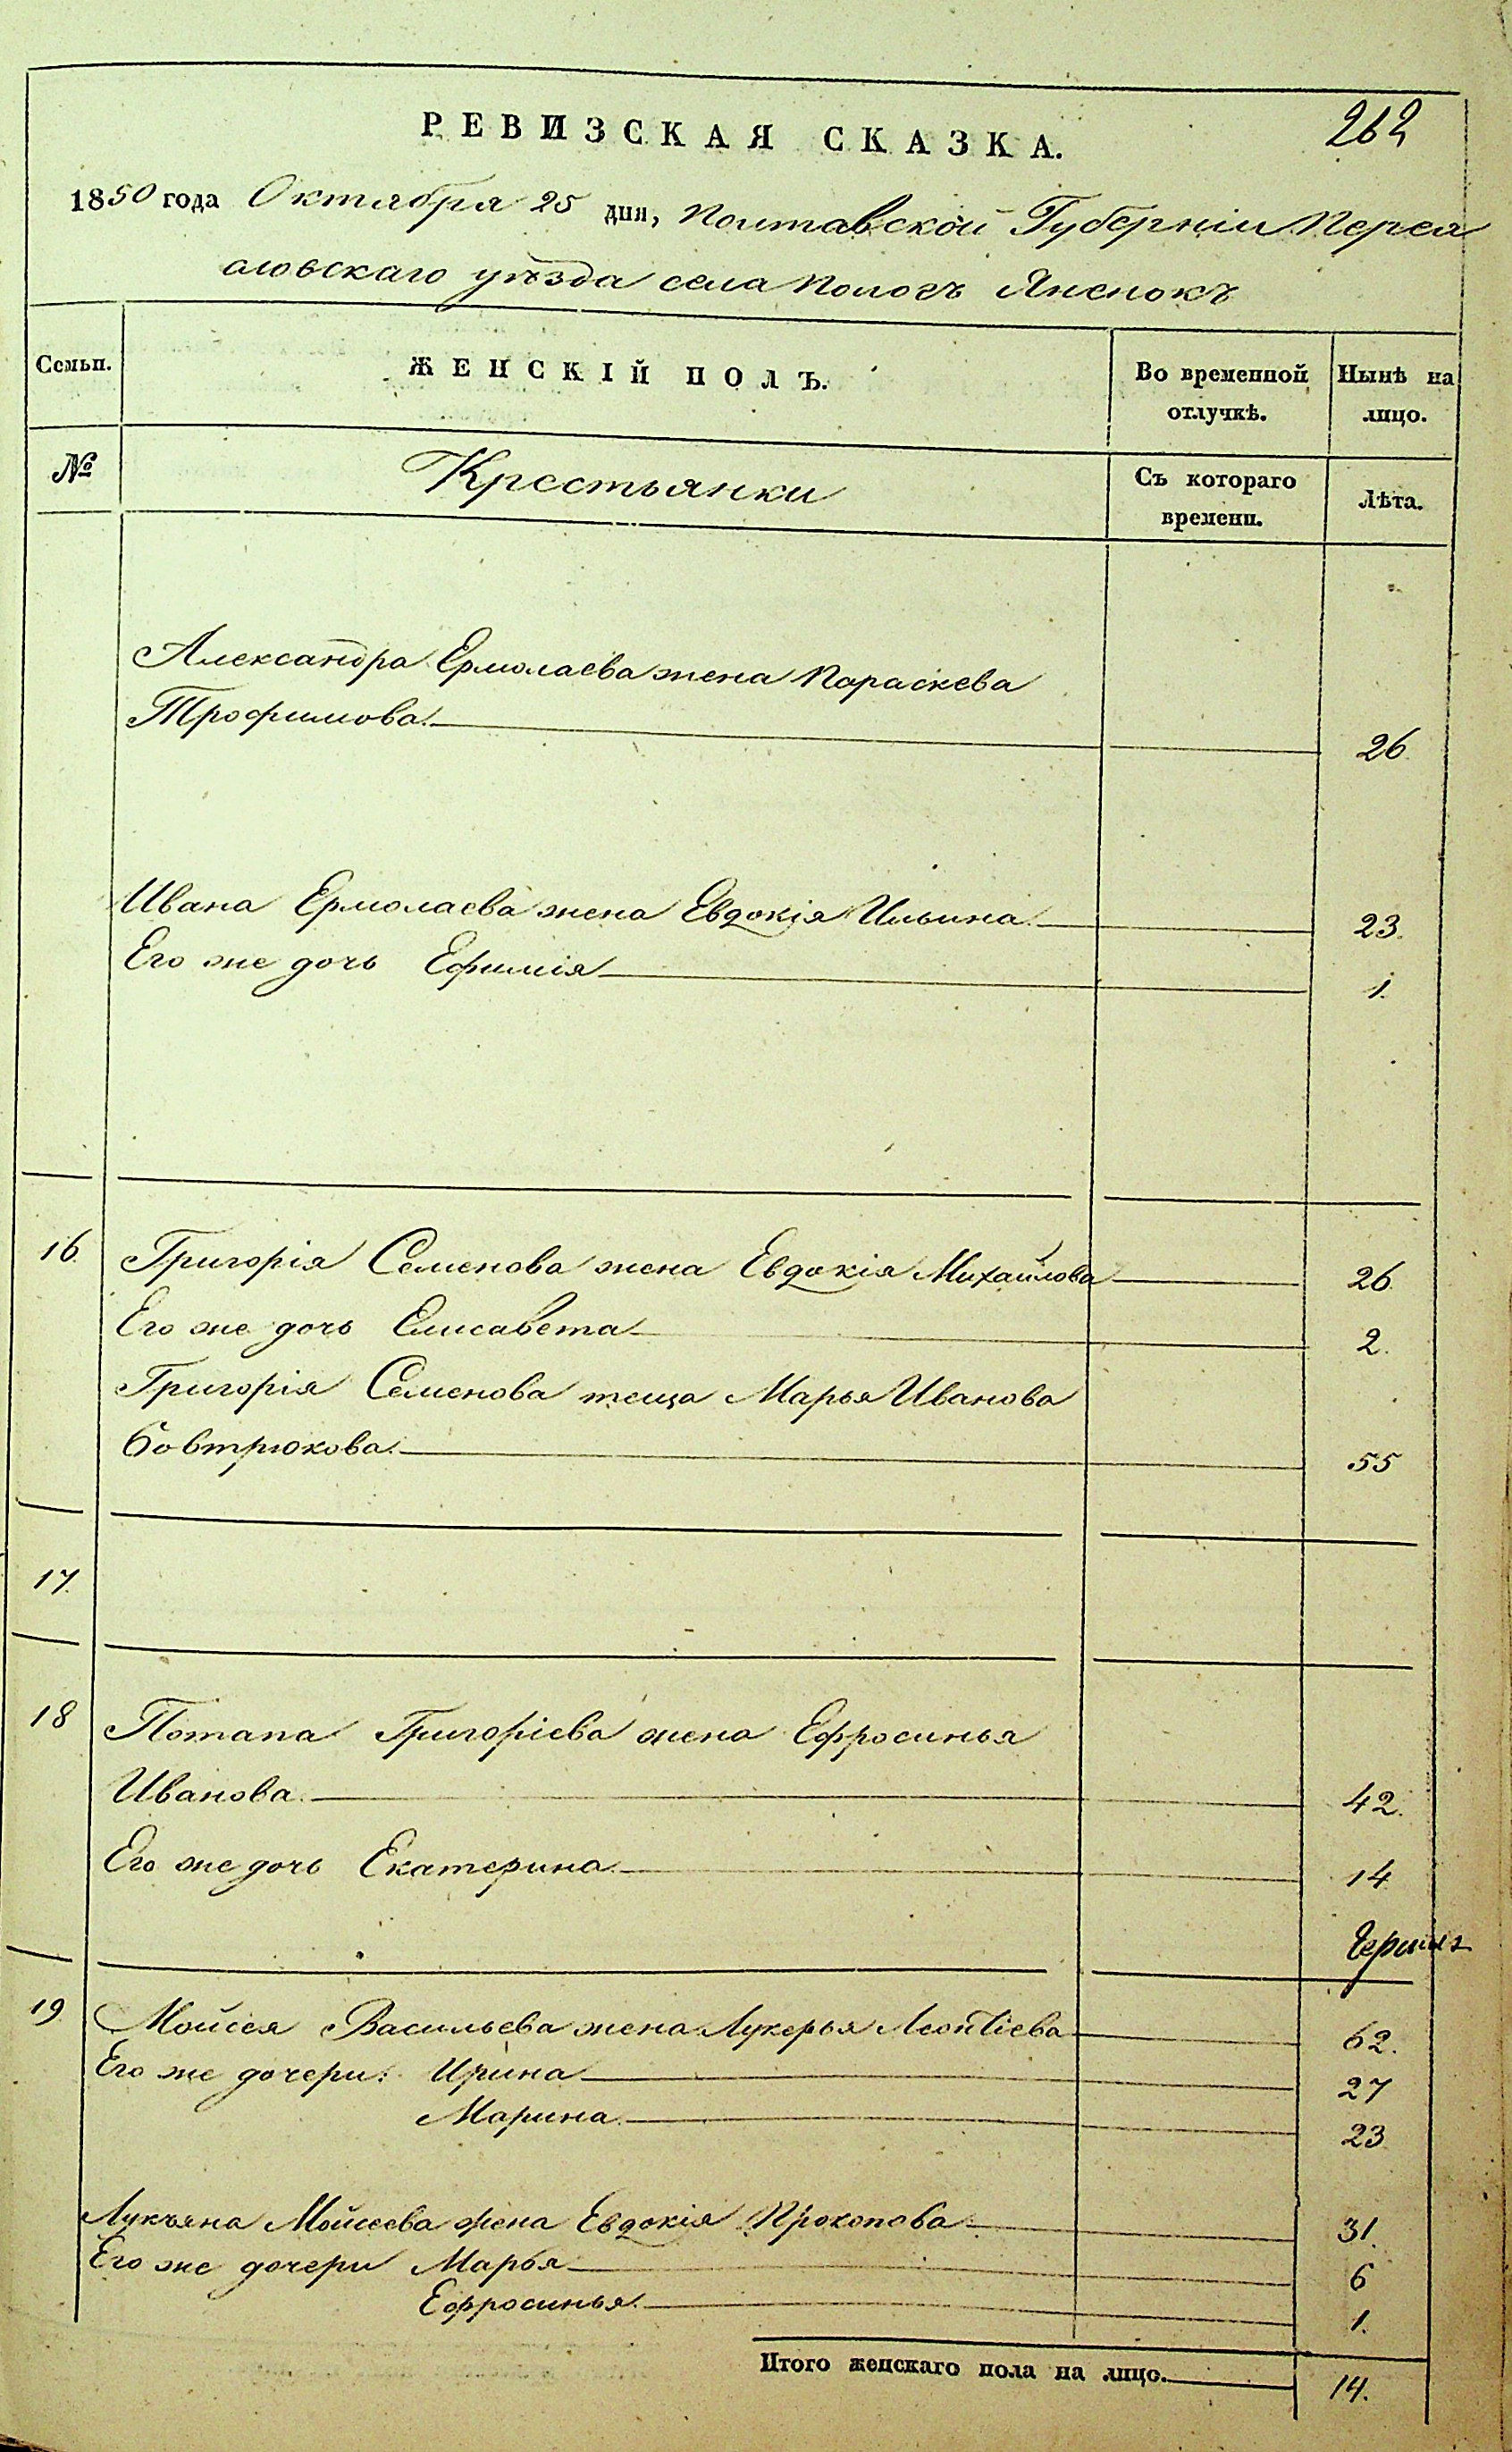 262
РЕВИЗСКАЯ СКАЗКА.
1850 года Октября 25 дня, Полтавской Губерніи Перея
словскаго уѣзда села Пологъ Яненокъ
Семьи. ЖЕНСКІЙ ПОЛЪ. Во временной отлучкѣ. Нынѣ на лицо.
№ Крестьянки Съ котораго времени. Лѣта.
Александра Ермолаева жена Параскева
Трофимова. 26
Ивана Ермолаева жена Евдокія Ильина 23.
Его же дочь Ефимія 1.
16. Григорія Семенова жена Евдокія Михайлова 26.
Его же дочь Елисавета 2.
Григорія Семенова теща Марья Иванова
Бовтрюкова. 55
17.
18 Потапа Григоріева жена Ефросинья
Иванова. 42.
Его же дочь Екатерина. 14
19. Мойсея Васильева жена Лукерья Леонтіева 62.
Его же дочери: Ирина 27
Марина. 23
Лукьяна Мойсеева жена Евдокія Прокопова. 31.
Его же дочери Марья 6
Ефросинья. 1.
Итого женскаго пола на лицо. 14.